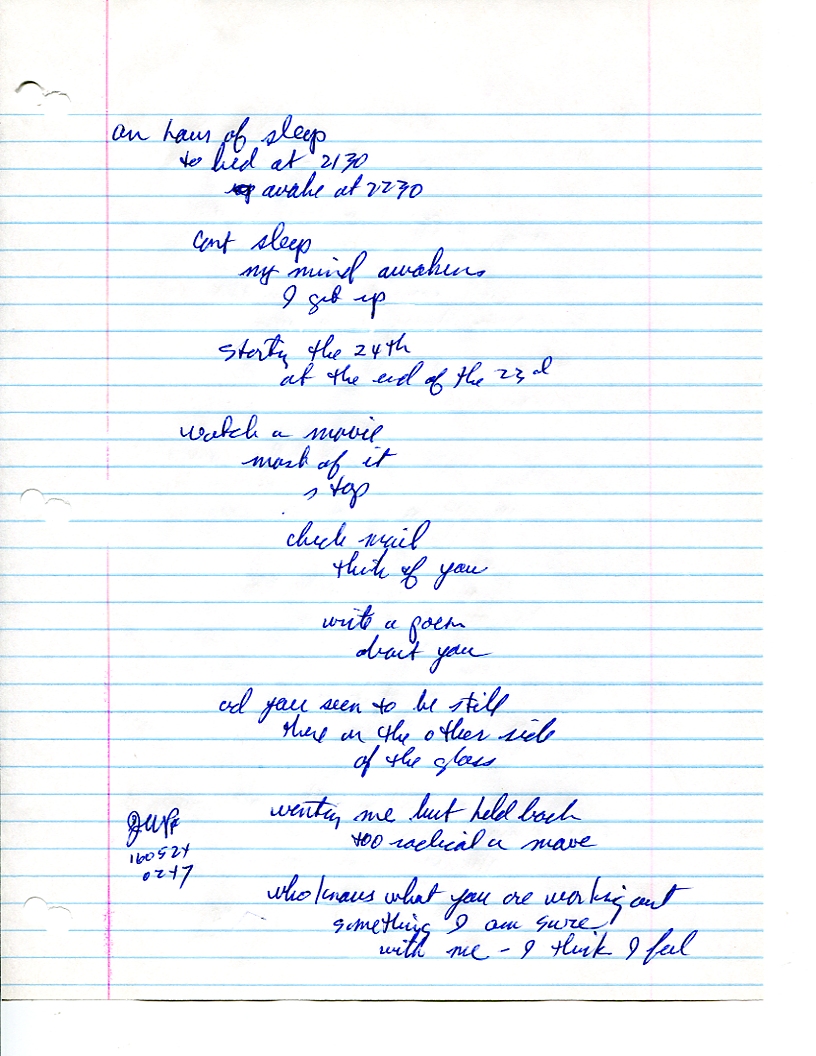 an hour of sleep
to bed at 2130
awake at 2230
cant sleep
my mind awakens
I get up
starting the 24th
at the end of the 23rd
watch a movie
most of it
stop
check mail
think of you
write a poem
about you
and you seem to be still
there on the other side
of the glass
wanting me but held back
too radical a move
160524
0247
who knows what you are working out
something I am sure
with me - I think I feel